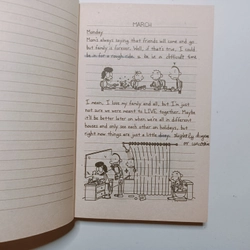 MARCH
Monday
Mom's always saying that friends will come and go
but family is forever. Well, if that's true, I could
be in for a rough ride a difficult time
I mean, I love my family and all, but I'm just
not sure we were meant to LIVE together. Maybe
it'll be better later on when we're all in different
houses and only see each other on holidays, but
right now things are just a little dicey.